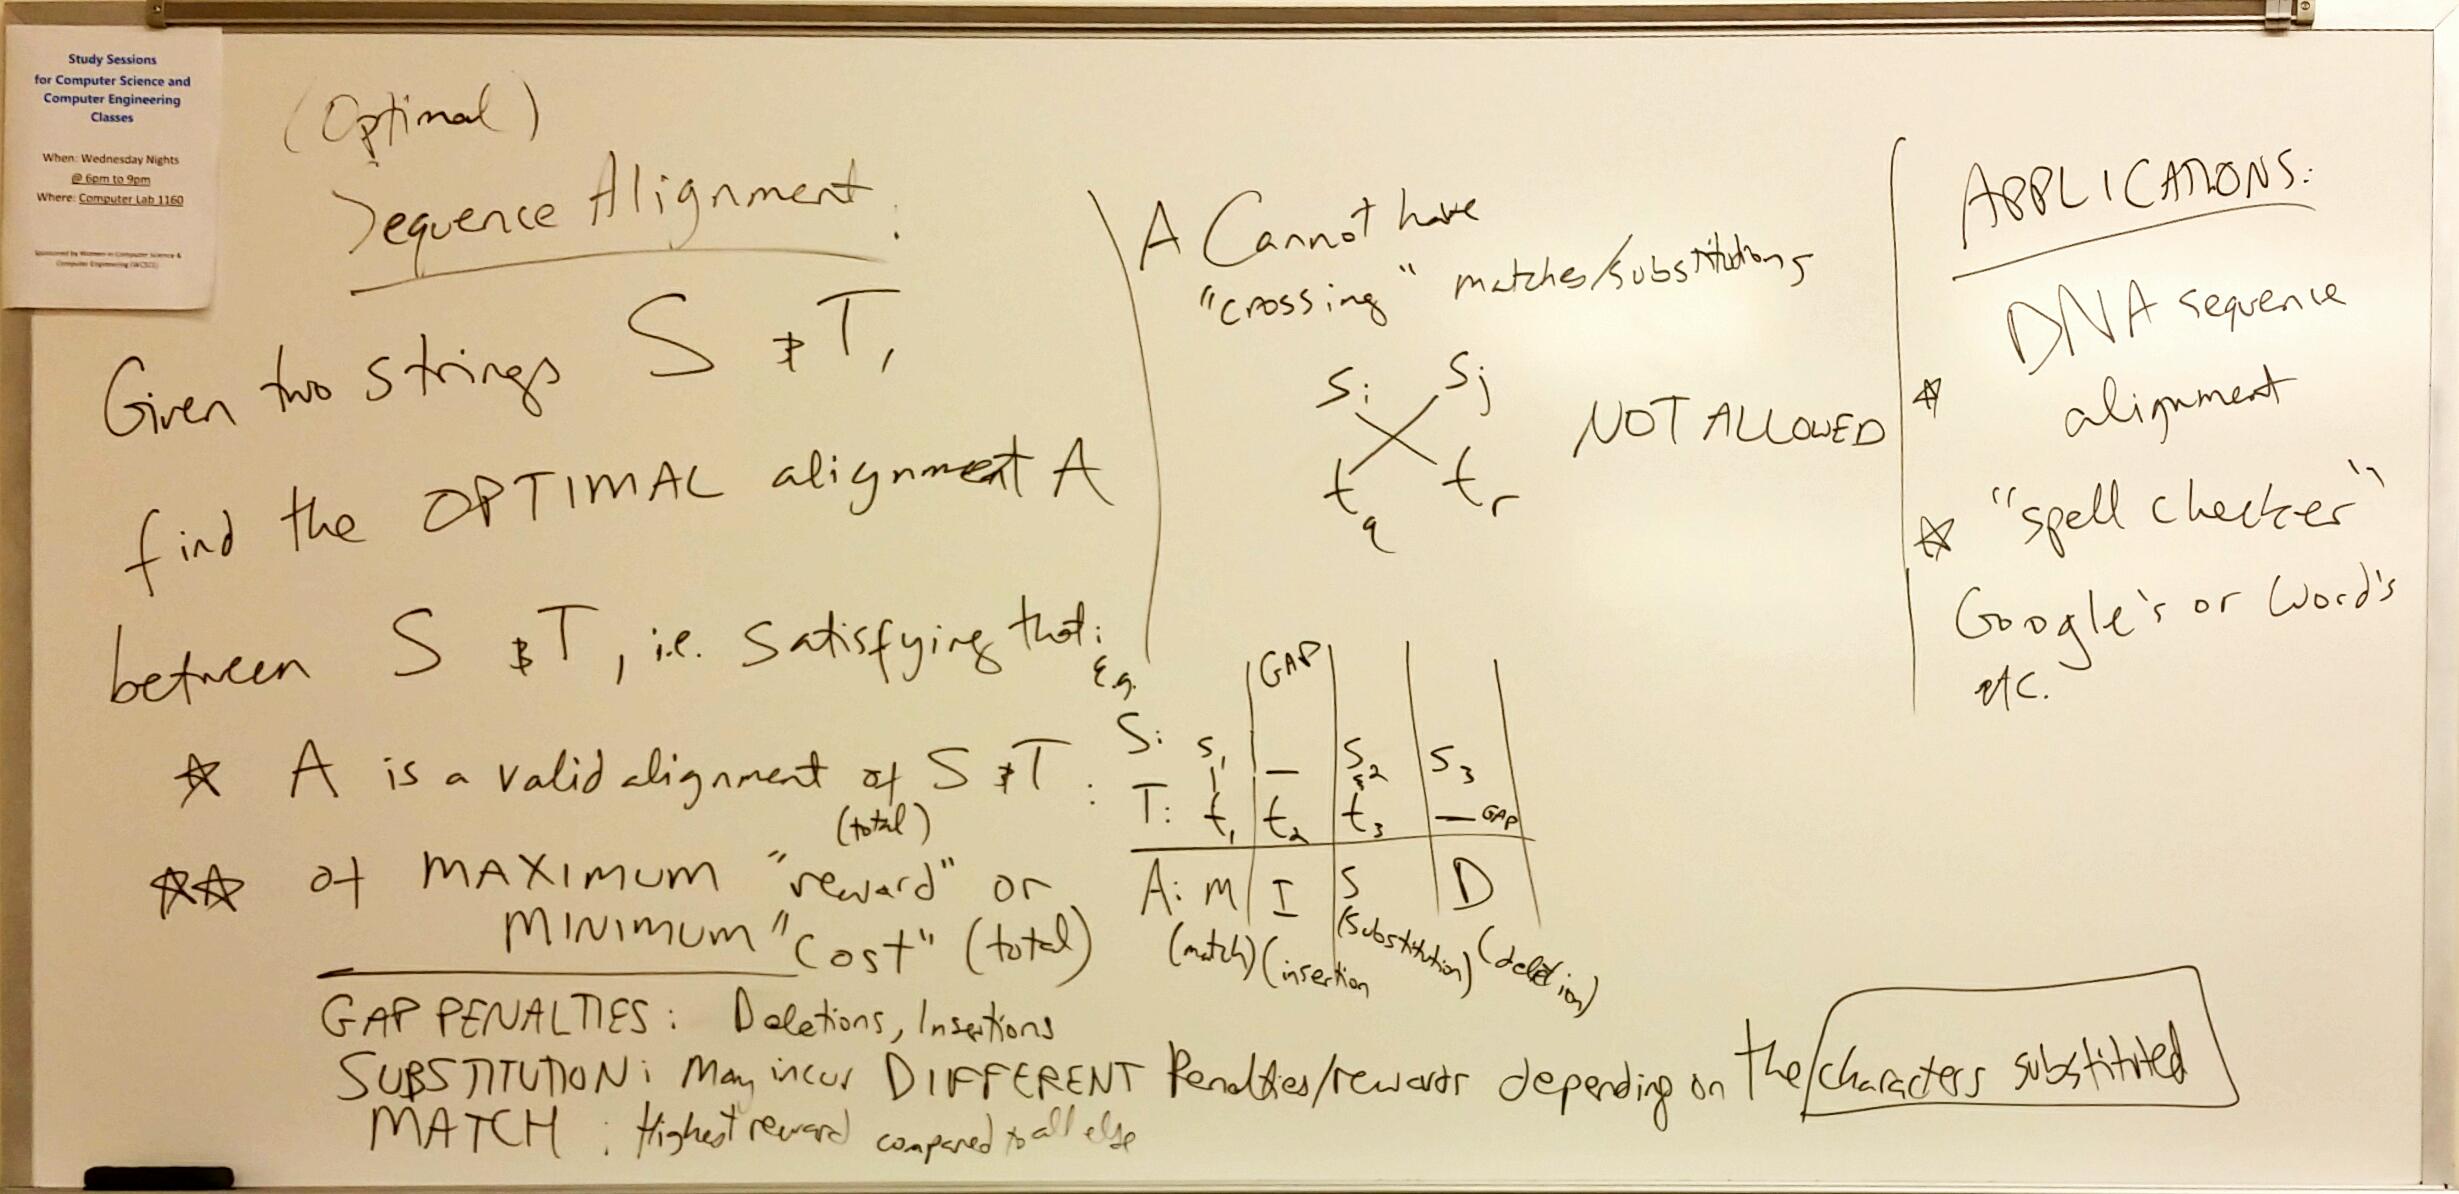 Study Sessions
for Computer Science and
Computer Engineering
Classes
When: Wednesday Nights
@ 6pm to 9pm
Where: Computer Lab 1160
Sponsored by Women in Computer Science &
Computer Engineering (WCSCE)
(Optimal)
Sequence Alignment:
Given two strings S & T,
find the OPTIMAL alignment A
between S & T, i.e. satisfying that:
☆ A is a valid alignment of S & T:
(total)
☆☆ of MAXIMUM "reward" or
MINIMUM "cost" (total)
A Cannot have
"crossing" matches/substitutions
si sj
NOT ALLOWED
tq tr
E.g.
GAP
S: s1 _ s2 s3
T: t1 t2 t3 _ GAP
A: M I S D
(match) (insertion (substitution) (deletion)
APPLICATIONS:
☆ DNA sequence
alignment
☆ "spell checker"
Google's or Word's
etc.
GAP PENALTIES: Deletions, Insertions
SUBSTITUTION: May incur DIFFERENT Penalties/rewards depending on the characters substituted
MATCH: Highest reward compared to all else